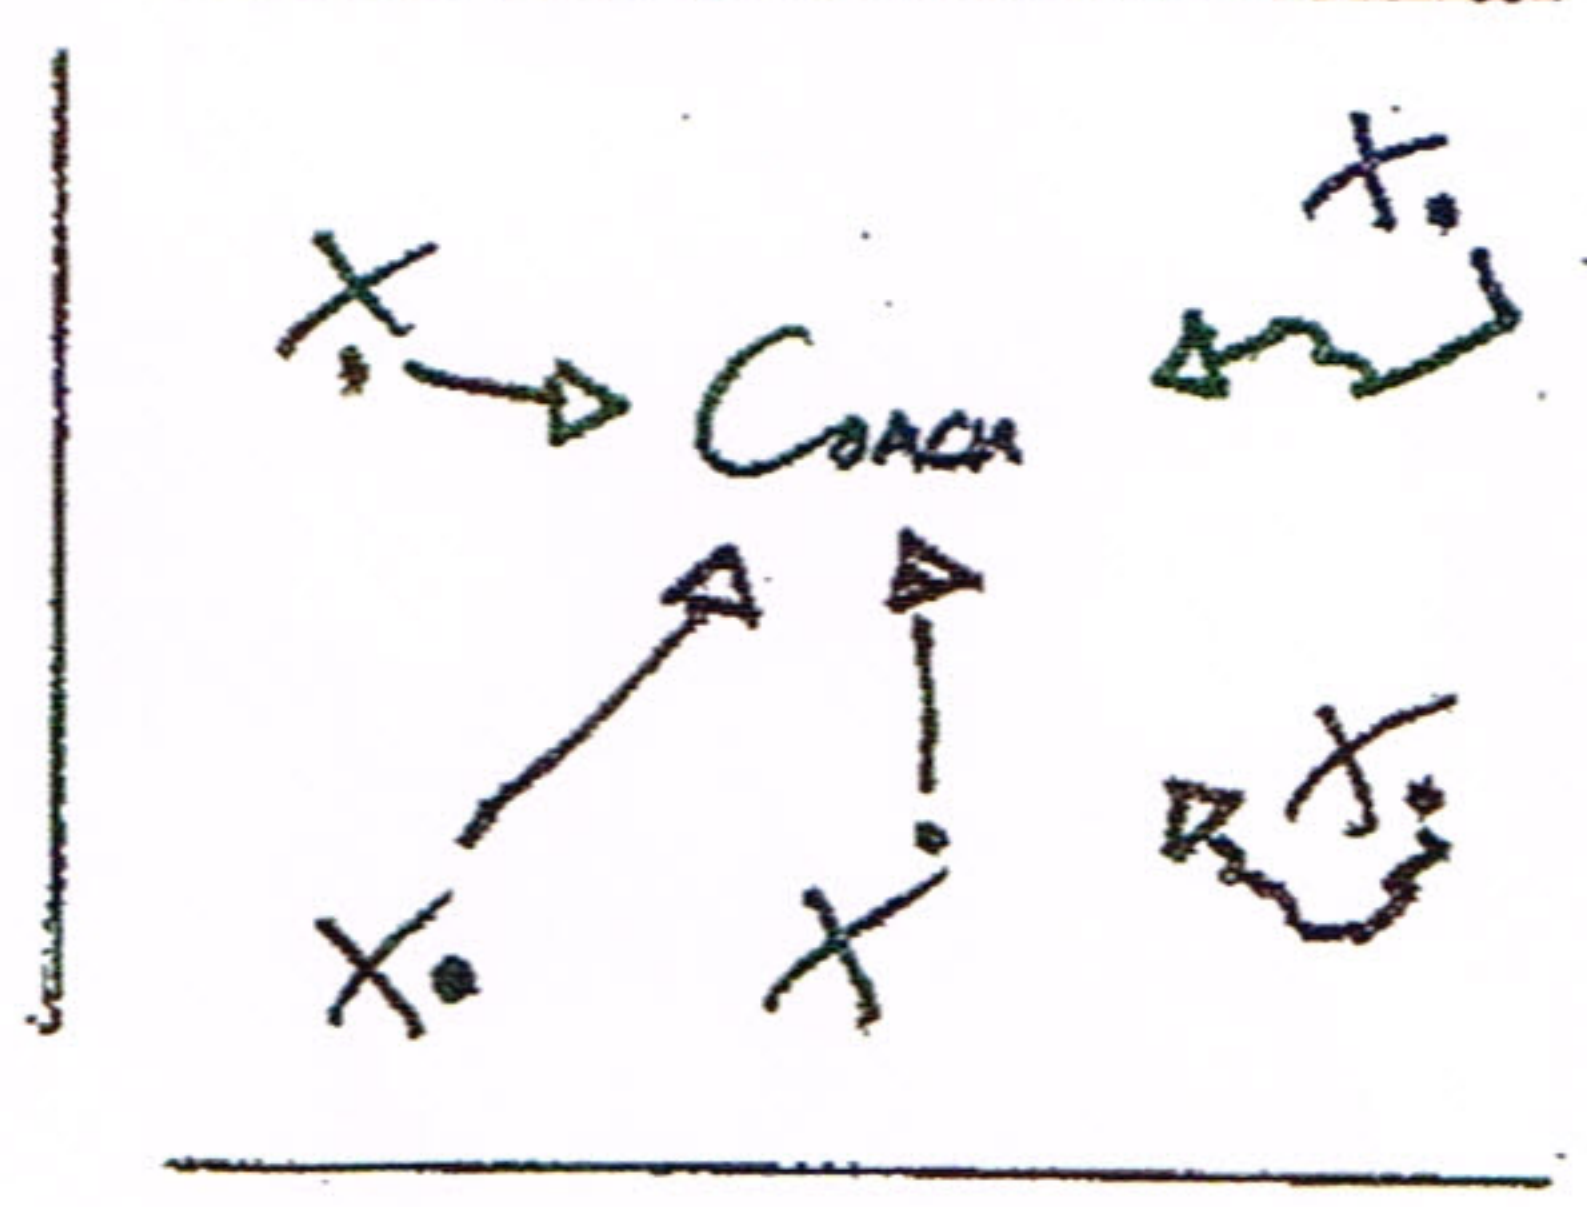 X
X
Coach
X
X
X